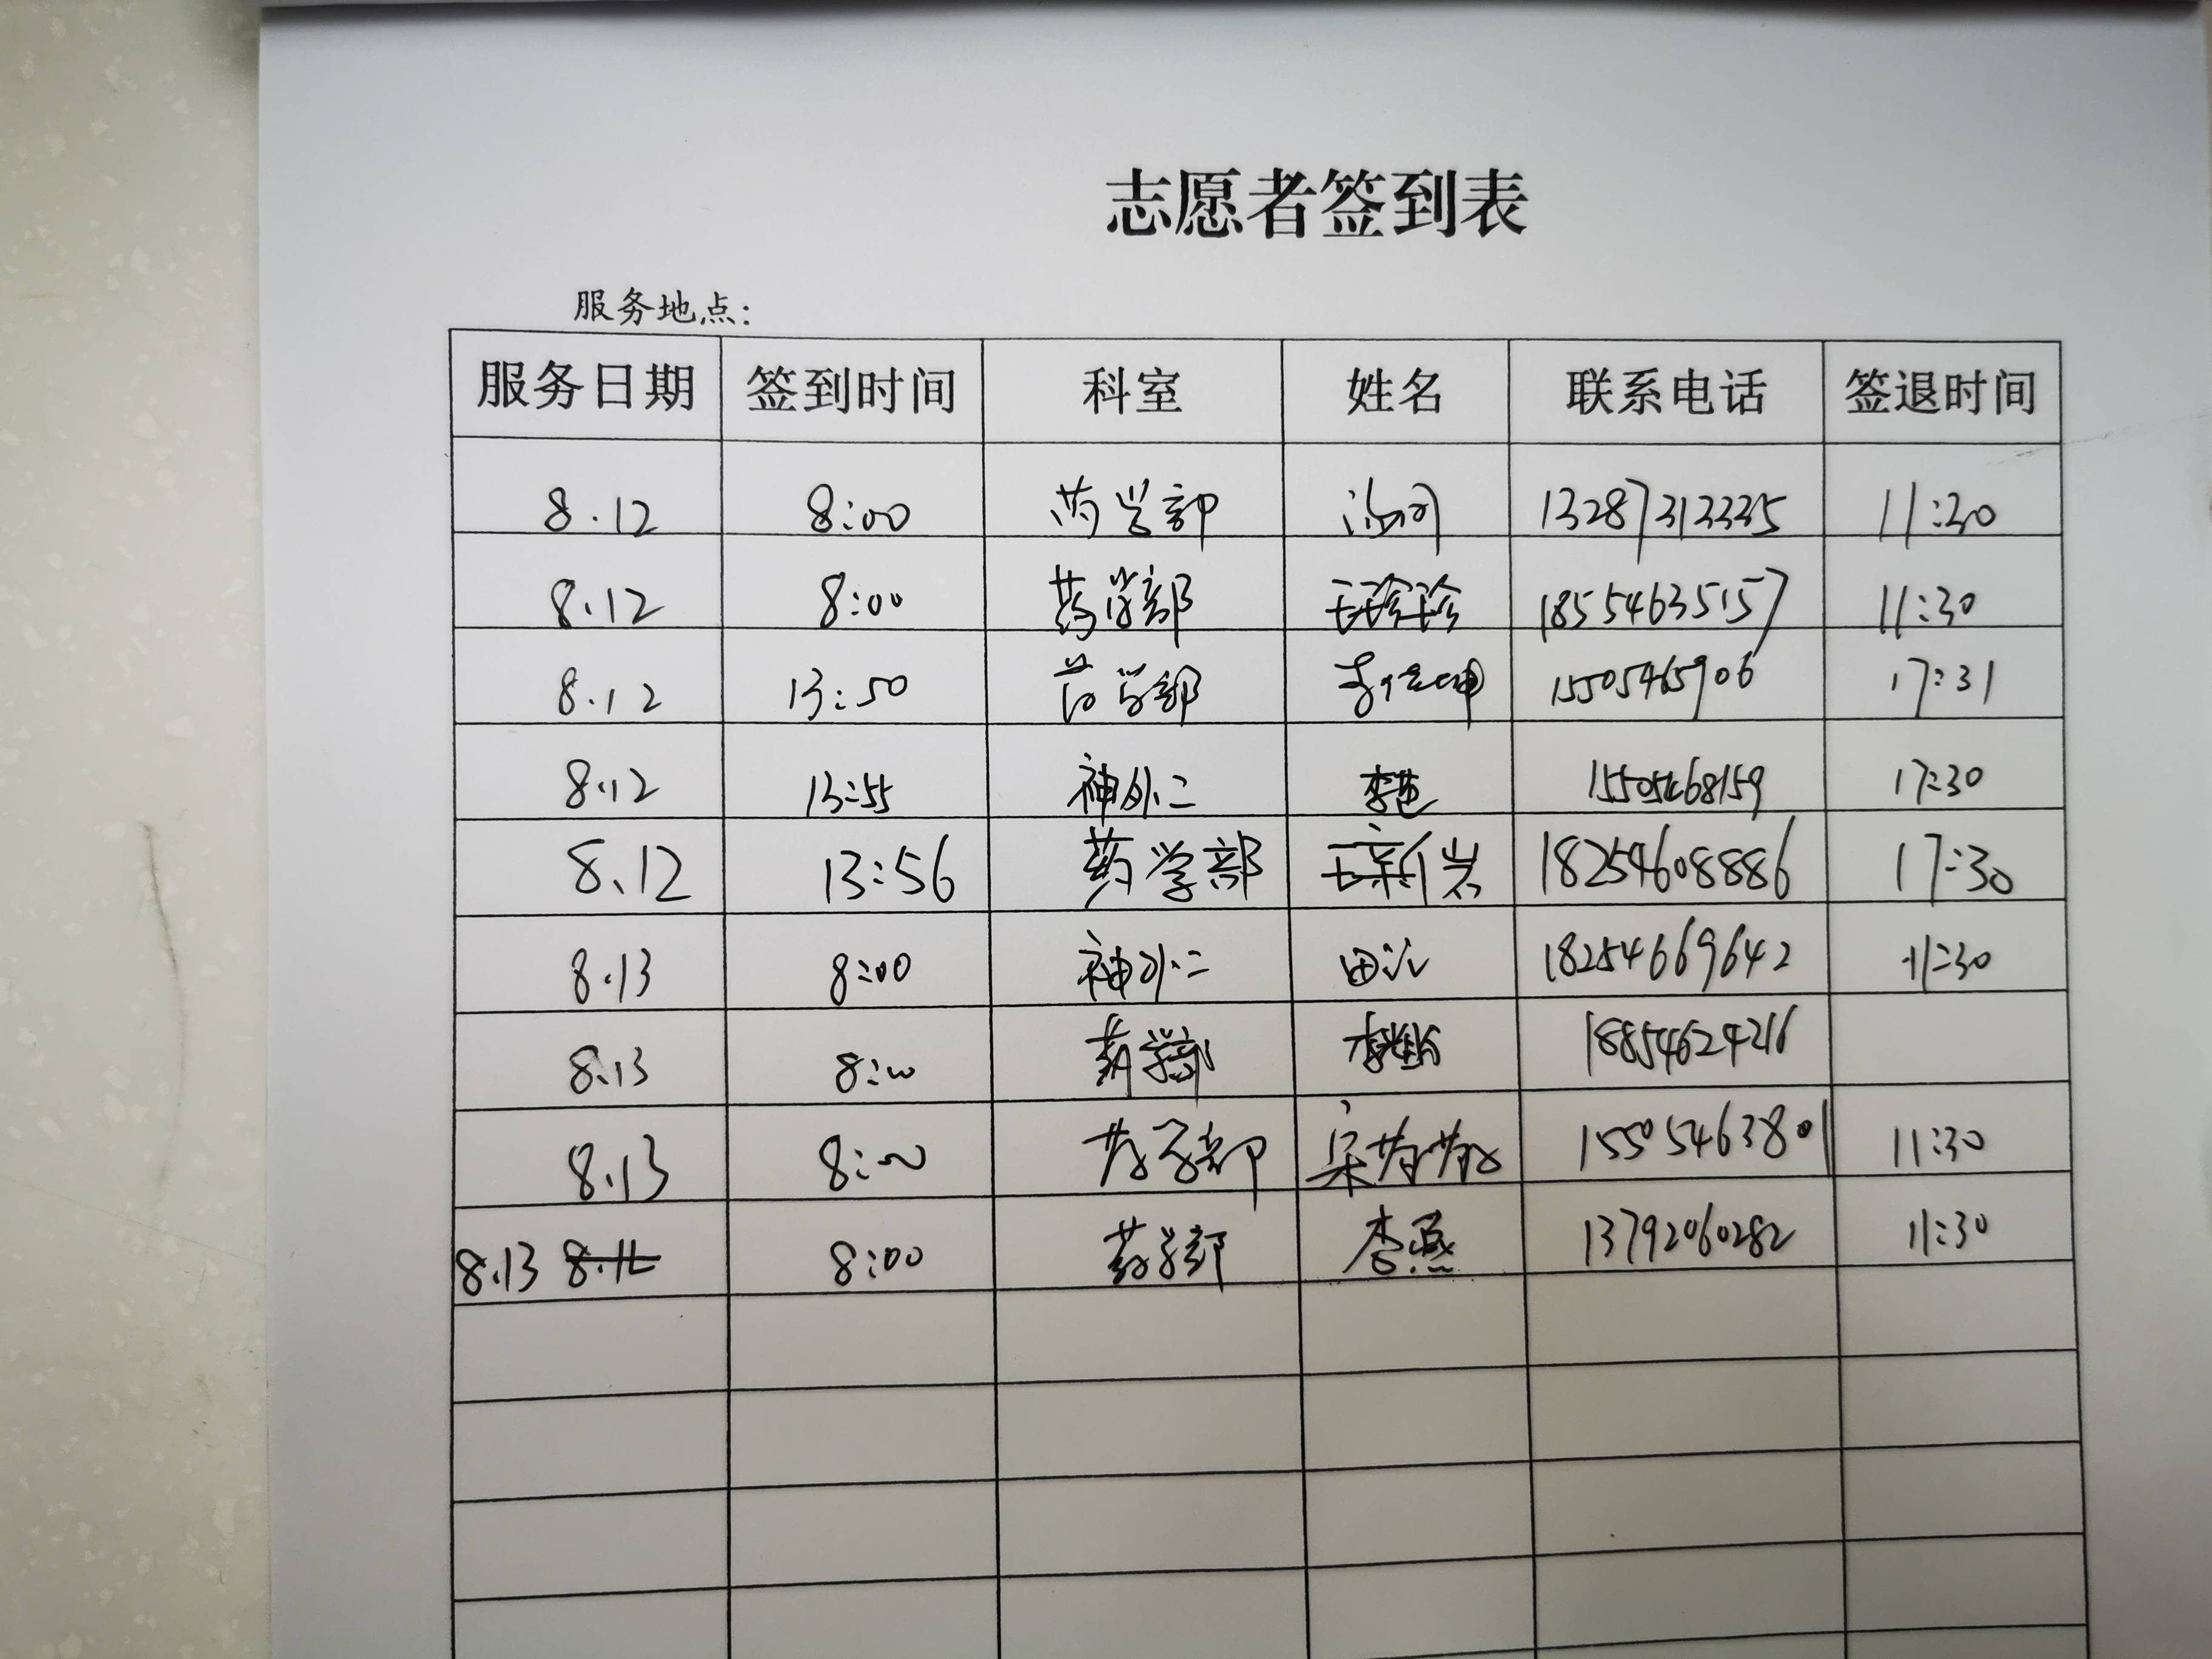 志愿者签到表
服务地点:
服务日期 签到时间 科室 姓名 联系电话 签退时间
8.12 8:00 药学部 13287313335 11:30
8.12 8:00 药学部 王珍珍 18554635157 11:30
8.12 13:50 药学部 15505465906 17:31
8.12 13:55 神外二 15505468159 17:30
8.12 13:56 药学部 王新岩 18254608886 17:30
8.13 8:00 神外二 18254669642 11:30
8.13 8:00 药学部 18854624216
8.13 8:00 药学部 15505463801 11:30
8.13 8.12 8:00 药学部 李燕 13792060282 11:30